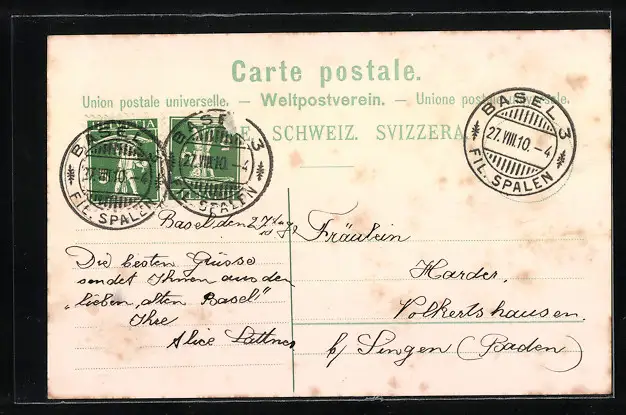 Carte postale.
Union postale universelle. — Weltpostverein. — Unione postale universale.
SCHWEIZ. SVIZZERA.
HELVETIA
BASEL 3
27.VIII.10.–4
FIL. SPALEN
BASEL 3
27.VIII.10.–4
FIL. SPALEN
BASEL 3
27.VIII.10.–4
FIL. SPALEN
Basel, den 27
Die besten Grüsse
sendet Ihnen aus dem
„lieben, alten Basel"
Ihre
Alice
Fräulein
Harder,
Volkertshausen.
b/ Singen (Baden)